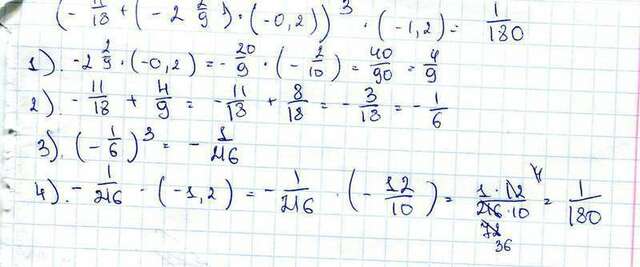 (-11/18 + (-2 2/9) · (-0,2))³ · (-1,2) = 1/180
1). -2 2/9 · (-0,2) = -20/9 · (-2/10) = 40/90 = 4/9
2). -11/18 + 4/9 = -11/18 + 8/18 = -3/18 = -1/6
3). (-1/6)³ = -1/216
4). -1/216 · (-1,2) = -1/216 · (-12/10) = 1·12/216·10 = 1/180
72
36